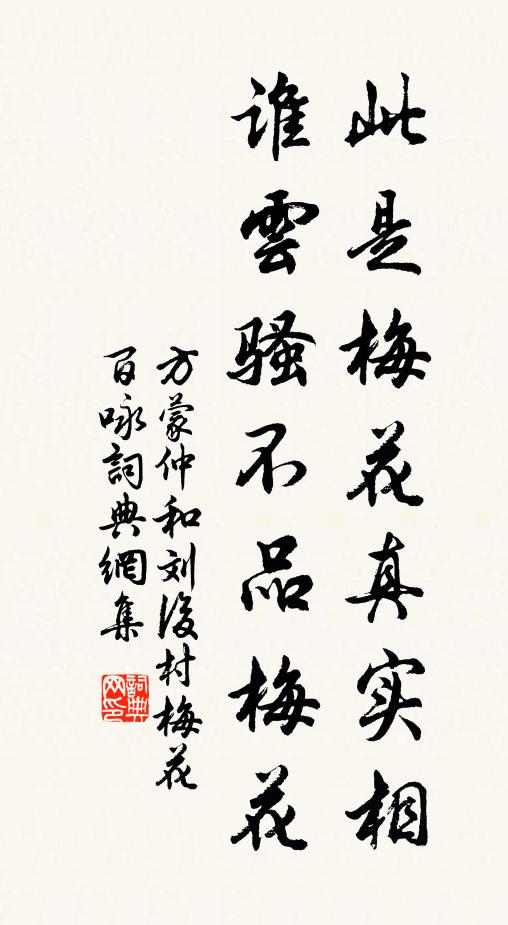 此是梅花真实相
谁雲骚不品梅花
方蒙仲和刘後村梅花
百咏詞典網集
詞典网印